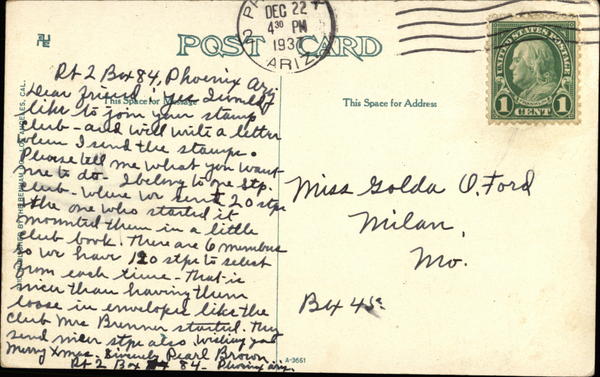 POST CARD
PHOENIX
DEC 22
4 30 PM
1937
ARIZ.
UNITED STATES POSTAGE
FRANKLIN
1 CENT 1
This Space for Message
This Space for Address
Rt 2 Box 84, Phoenix Ariz
Dear friend: yes I would
like to join your stamp
club - and will write a letter
when I send the stamps.
Please tell me what you want
me to do. I belong to one stp.
club - where we sent 20 stps
& the one who started it
mounted them in a little
club book. There are 6 members
so we have 120 stps to select
from each time - That is
nicer than having them
loose in envelopes like the
club Mrs Brenner started. They
send nicer stps also. Wishing you
Merry Xmas. Sincerely Pearl Brown
Rt 2 Box 84 - Phoenix ariz.
Miss Golda O. Ford
Milan,
Mo.
Bx 45
A-3661
LOS ANGELES, CAL.